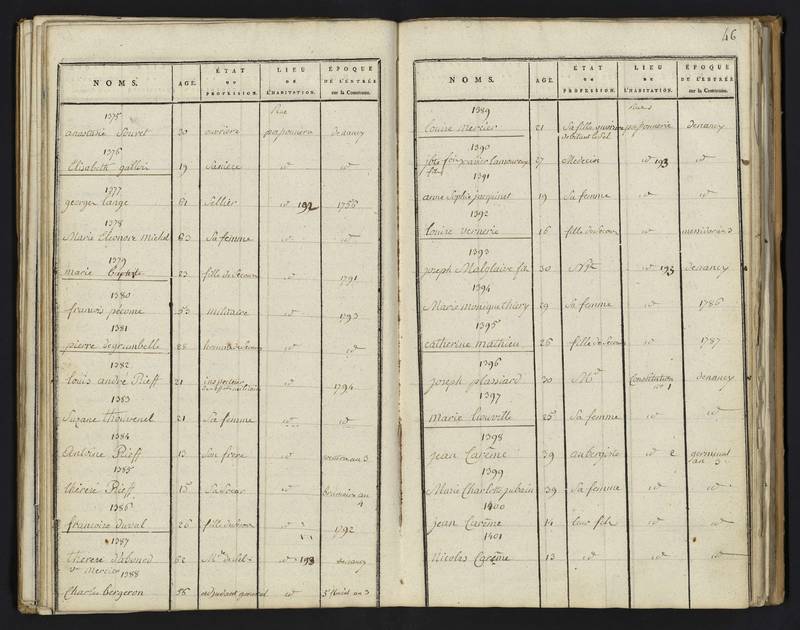 NOMS. AGE. ÉTAT OU PROFESSION. LIEU DE L'HABITATION. ÉPOQUE DE L'ENTRÉE sur la Commune.
1375 Rue
anastasie Souvet 30 ouvriere paponnerie denancy
1376
Elisabeth galleri 19 Saniece id id
1377
george lange 61 Sellier id 192 1756
1378
Marie Eleonore michel 63 Sa femme id id
1379
marie baptiste 23 fille de Secours id 1791
1380
francois pécome 53 militaire id 1793
1381
pierre degrambelle 28 id id
1382
Louis andré Rieff 21 inspecteur id 1794
1383
Suzane thouvenel 21 Sa femme id id
1384
Antoine Rieff 13 Son frere id an 3
1385
thérese Rieff 15 Sa Soeur id brumaire an 4
1386
francoise duval 26 fille de Secours id 1792
1387
therese d'abonod 62 Mde de Sel id 193 denancy
ve Mercier 1388
Charles bergeron 56 adjudant general id an 3
46
NOMS. AGE. ÉTAT OU PROFESSION. LIEU DE L'HABITATION. ÉPOQUE DE L'ENTRÉE sur la Commune.
1389 Rue
Louise Mercier 21 Sa fille ouvriere paponnerie denancy
debitant le Sel
1390
jbte fois xavier lamoureux 27 Medecin id 193 id
fils
1391
anne Sophie jacquinet 19 Sa femme id id
1392
louise vernerie 16 fille de Secours id messidor an 3
1393
joseph Malglaive fils 30 id 195 denancy
1394
Marie monique thiery 29 Sa femme id 1786
1395
catherine mathieu 26 fille de Secours id 1787
1396
joseph plassiard 30 Md Constitution denancy
n° 1
1397
marie Liouville 25 Sa femme id id
1398
jean Carême 39 aubergiste id 2 germinal
an 3
1399
Marie Charlotte 39 Sa femme id id
1400
jean Carême 14 leur fils id id
1401
Nicolas Carême 13 id id id